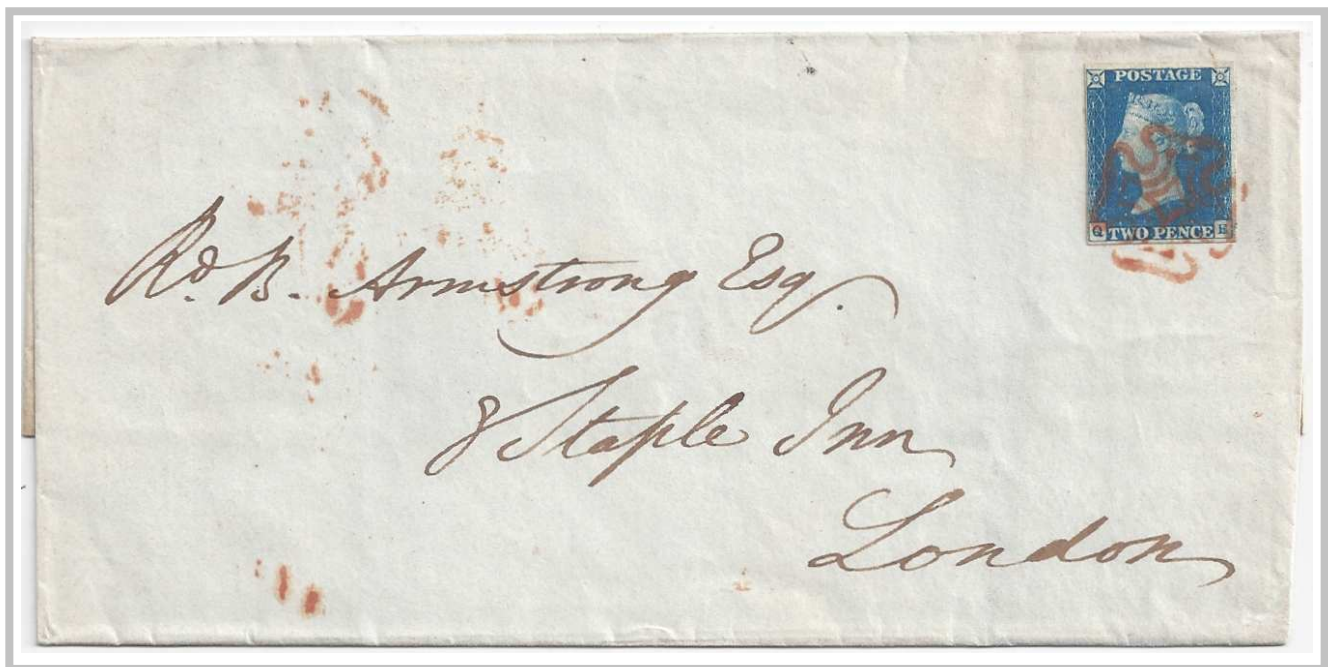 POSTAGE
TWO PENCE
Rd. B. Armstrong Esq.
8 Staple Inn
London